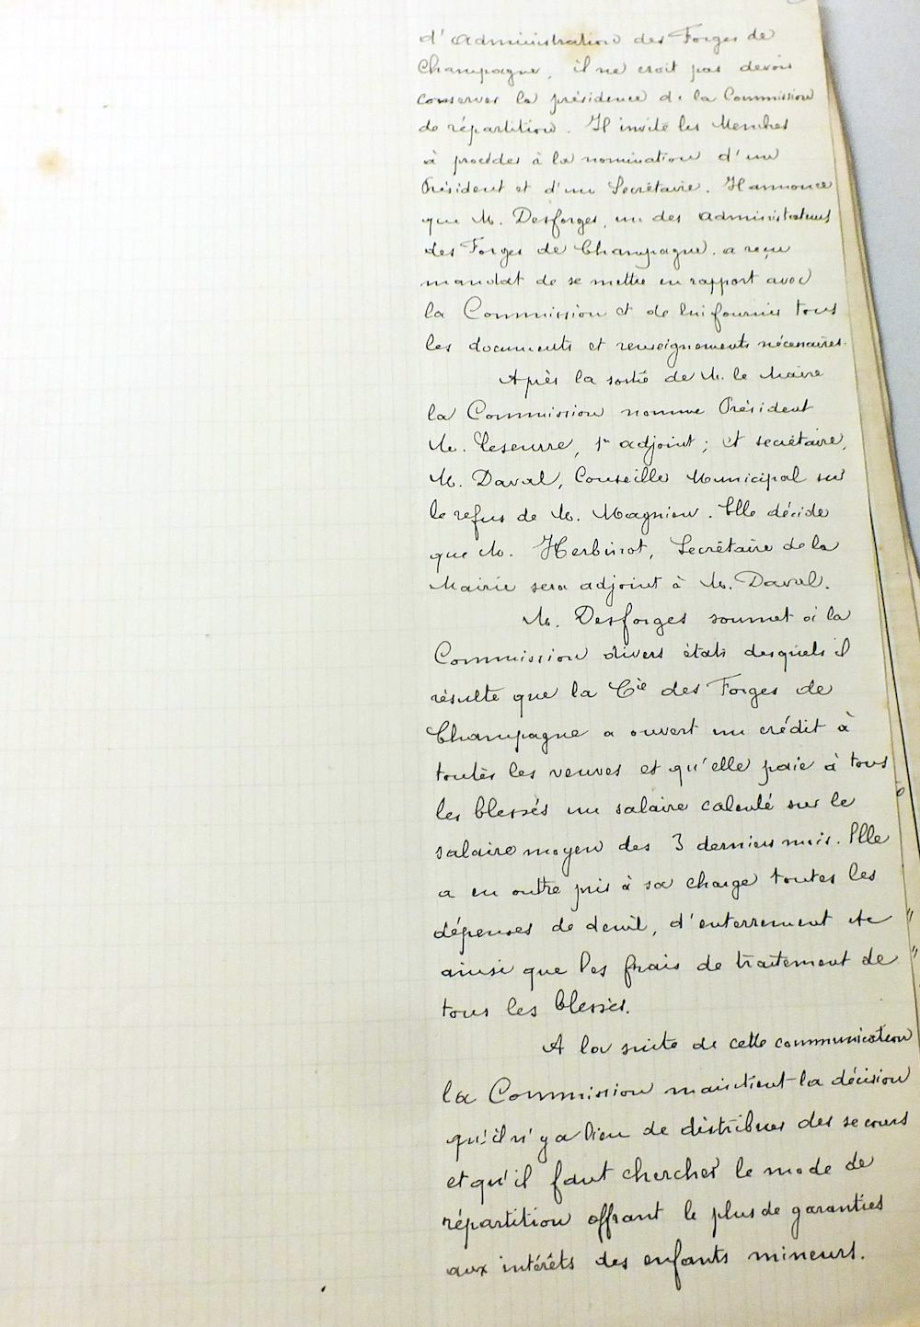 d'administration des Forges de
Champagne, il ne croit pas devoir
conserver la présidence de la Commission
de répartition. Il invite les Membres
à procéder à la nomination d'un
Président et d'un Secrétaire. Il annonce
que M. Desforges, un des administrateurs
des Forges de Champagne, a reçu
mandat de se mettre en rapport avec
la Commission et de lui fournir tous
les documents et renseignements nécessaires.
Après la sortie de M. le Maire
la Commission nomme Président
M. Leseurre, 1er adjoint; et secrétaire,
M. Daval, Conseiller Municipal sur
le refus de M. Magnien. Elle décide
que M. Herbinot, Secrétaire de la
Mairie sera adjoint à M. Daval.
M. Desforges soumet à la
Commission divers états desquels il
résulte que la Cie des Forges de
Champagne a ouvert un crédit à
toutes les veuves et qu'elle paie à tous
les blessés un salaire calculé sur le
salaire moyen des 3 derniers mois. Elle
a en outre pris à sa charge toutes les
dépenses de deuil, d'enterrement etc
ainsi que les frais de traitement de
tous les blessés.
A la suite de cette communication
la Commission maintient la décision
qu'il n'y a lieu de distribuer des secours
et qu'il faut chercher le mode de
répartition offrant le plus de garanties
aux intérêts des enfants mineurs.